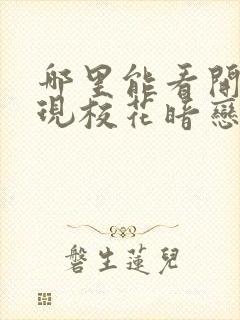 那里能看開
現校花暗戀
磐生蓮兒